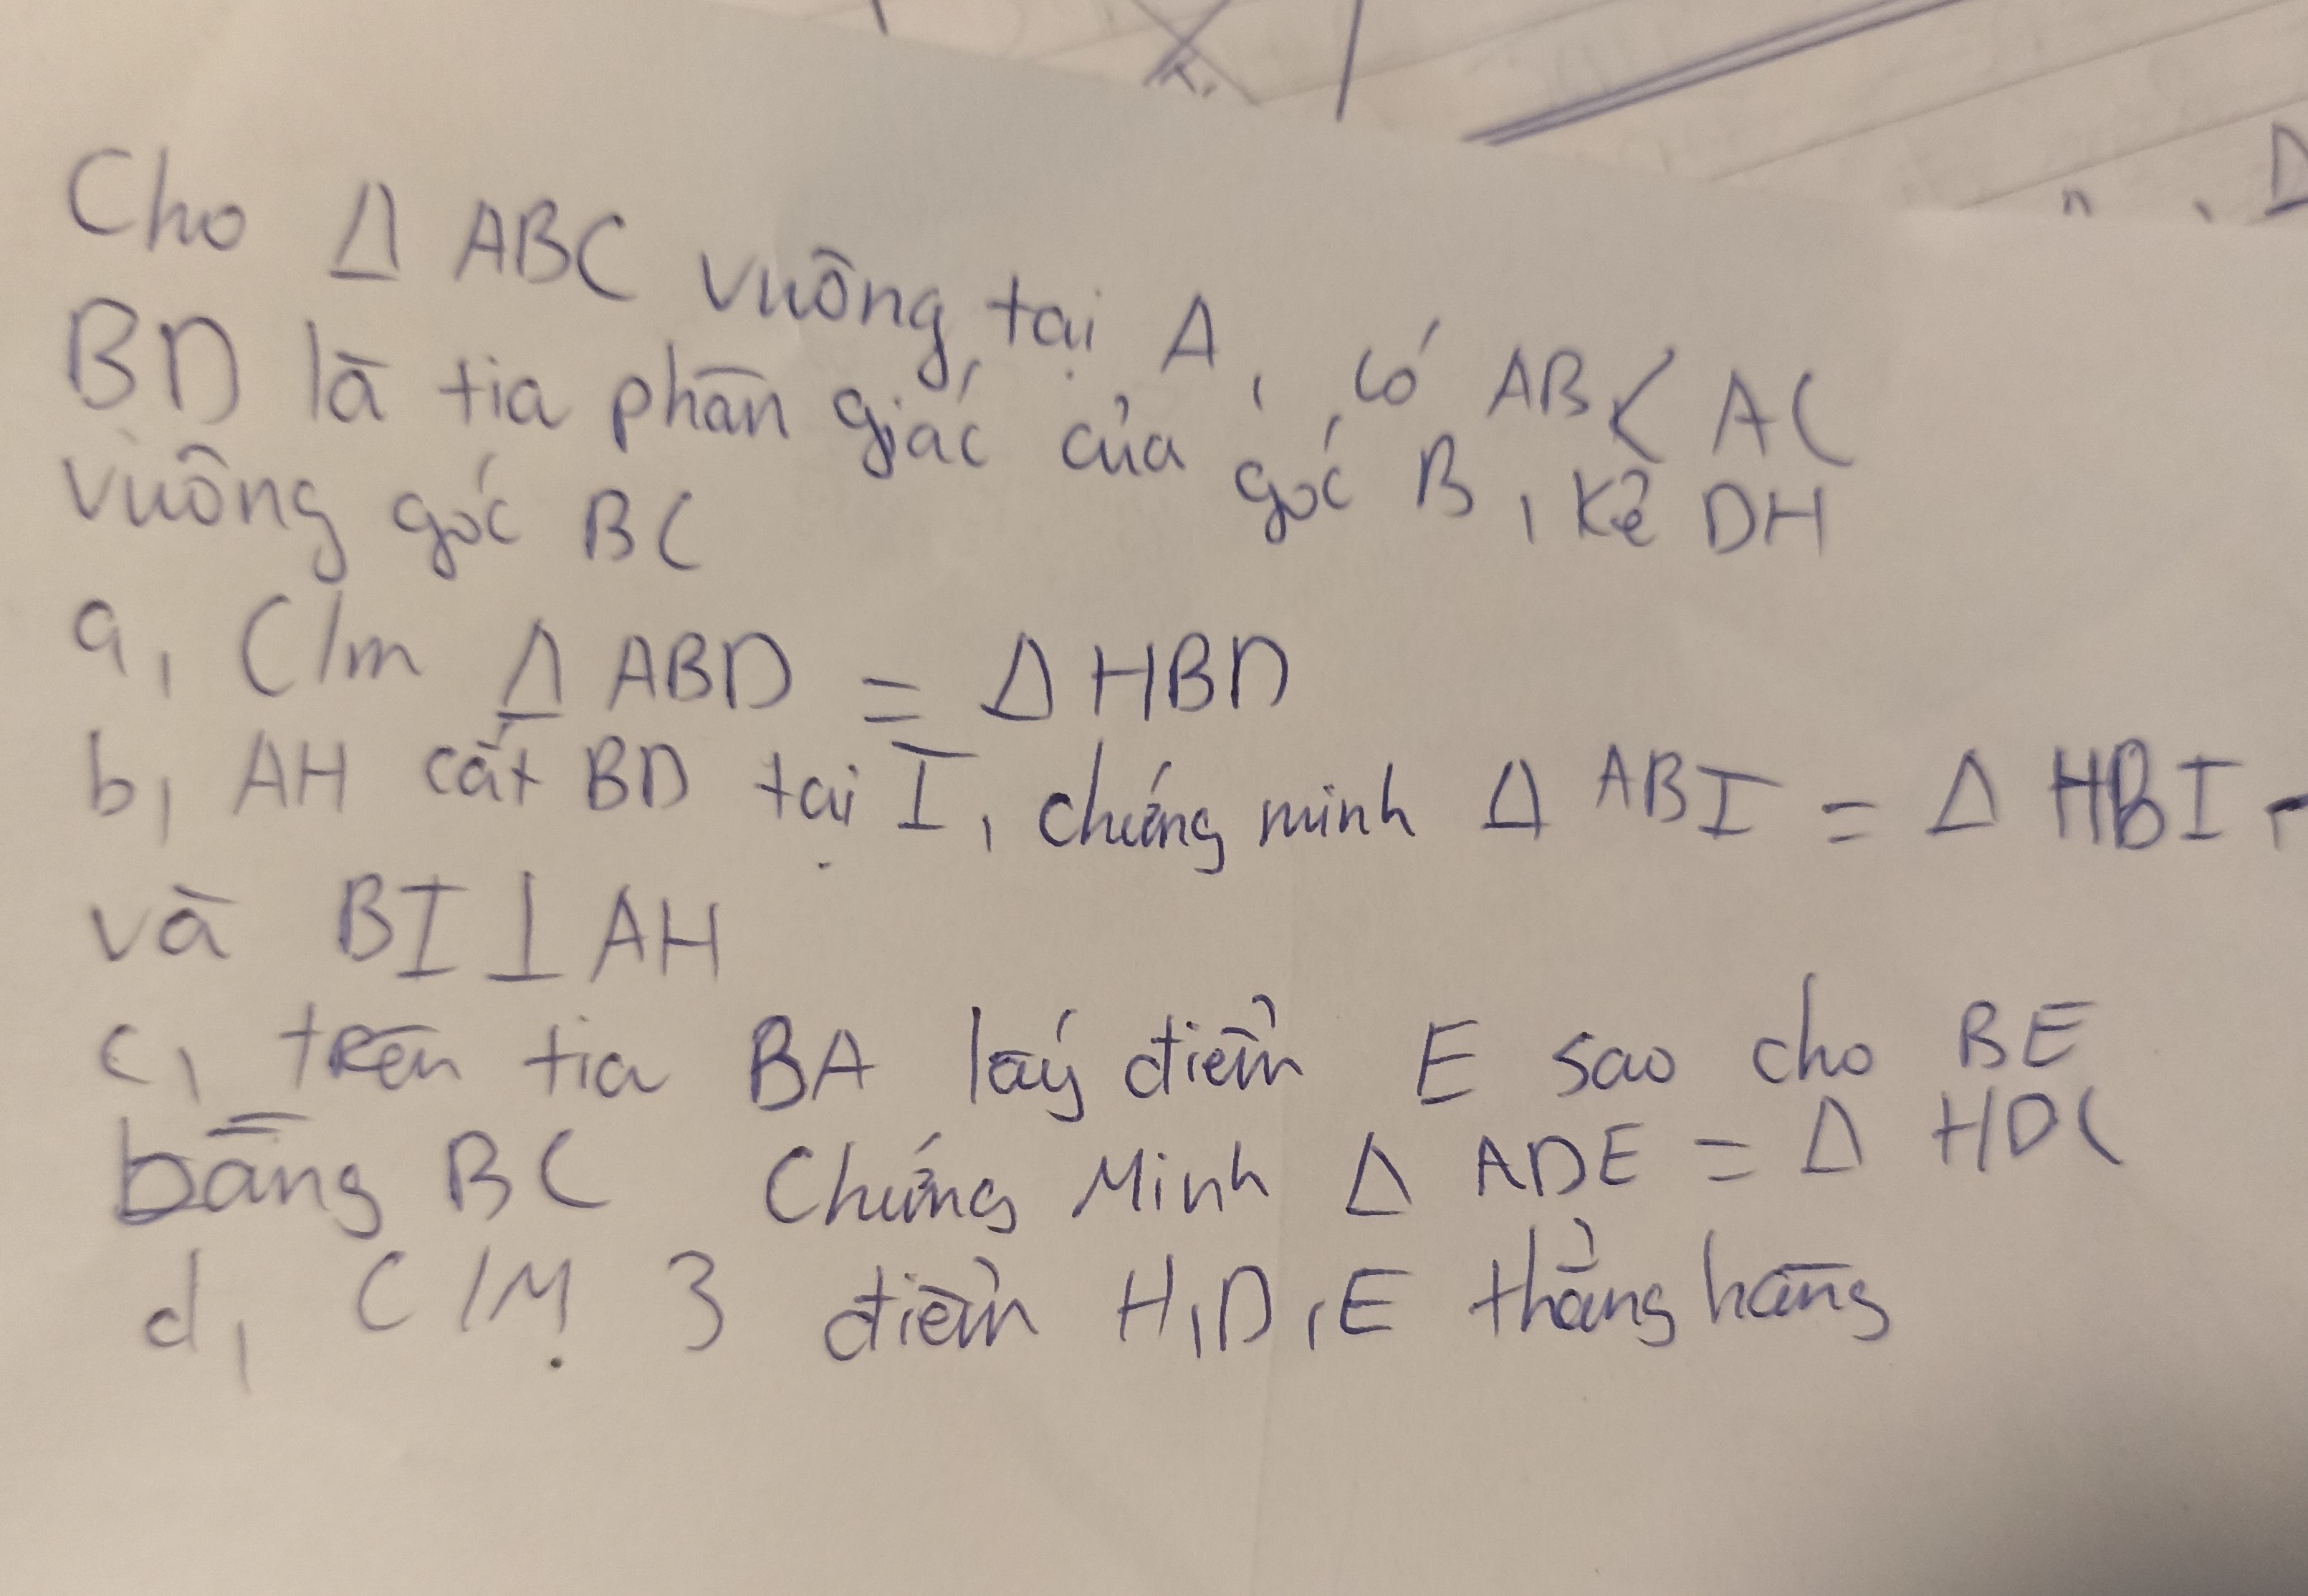 Cho Δ ABC vuông tại A, có AB < AC
BD là tia phân giác của góc B, kẻ DH
vuông góc BC
a, C/m Δ ABD = Δ HBD
b, AH cắt BD tại I, chứng minh Δ ABI = Δ HBI
và BI ⊥ AH
c, trên tia BA lấy điểm E sao cho BE
bằng BC Chứng Minh Δ ADE = Δ HDC
d, C/M 3 điểm H, D, E thẳng hàng